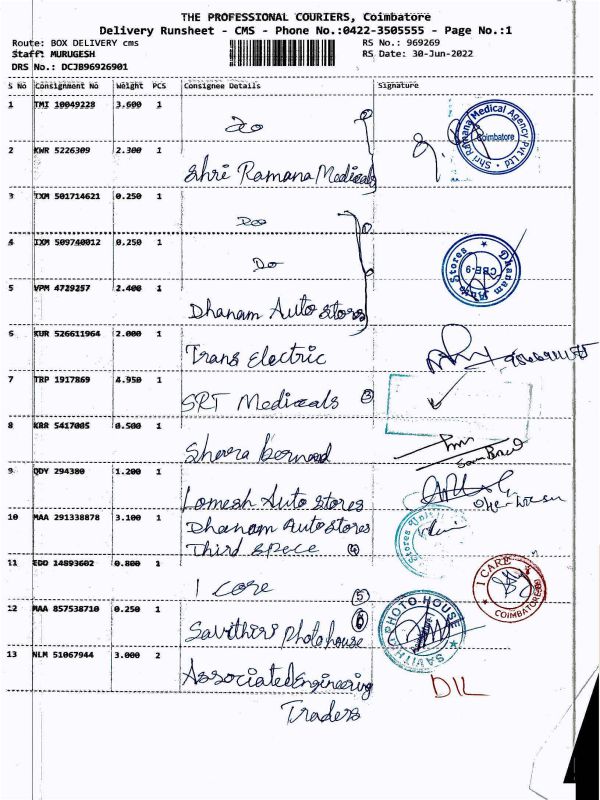 THE PROFESSIONAL COURIERS, Coimbatore
Delivery Runsheet - CMS - Phone No.:0422-3505555 - Page No.:1
Route: BOX DELIVERY cms RS No.: 969269
Staff: MURUGESH RS Date: 30-Jun-2022
DRS No.: DCJB96926901
S No Consignment No Weight PCS Consignee Details Signature
1 TMI 10049228 3.600 1 Do
2 KWR 5226309 2.300 1 Shri Ramana Medicals
Shri Ramana Medical Agency Pvt Ltd
Coimbatore
3 IXM 501714621 0.250 1 Do
4 IXM 509740012 0.250 1 Do
5 VPM 4729257 2.400 1 Dhanam Auto Stores
Dhanam Auto Stores
CBE-9
6 KUR 526611964 2.000 1 Trans Electric
7 TRP 1917869 4.950 1 SRT Medicals 3
8 KRR 5417005 0.500 1
9 QDY 294380 1.200 1 Lomesh Auto Stores
10 MAA 291338878 3.100 1 Dhanam Auto Stores
Third spece 4
11 EDD 14893602 0.800 1 I care 5
I CARE
COIMBATORE
12 MAA 857538710 0.250 1 Savithiri Photo house 6
SAVITHRI PHOTO HOUSE
13 NLM 51067944 3.000 2 Associated Engineering
Traders
DIL